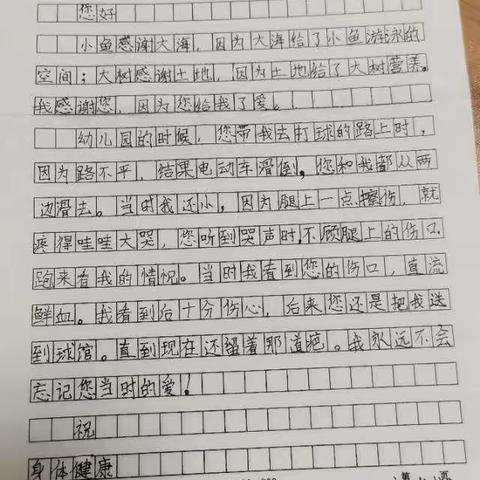 您好
小鱼感谢大海，因为大海给了小鱼游泳的
空间；大树感谢土地，因为土地给了大树营养。
我感谢您，因为您给我了爱。
幼儿园的时候，您带我去打球的路上时，
因为路不平，结果电动车滑倒。您和我都从两
边滑去。当时我还小，因为腿上一点擦伤，就
疼得哇哇大哭，您听到哭声时，不顾腿上的伤口
跑来看我的情况。当时我看到您的伤口，直流
鲜血。我看到后十分伤心，后来您还是把我送
到球馆。直到现在还留着那道疤。我永远不会
忘记您当时的爱！
祝
身体健康
第 页